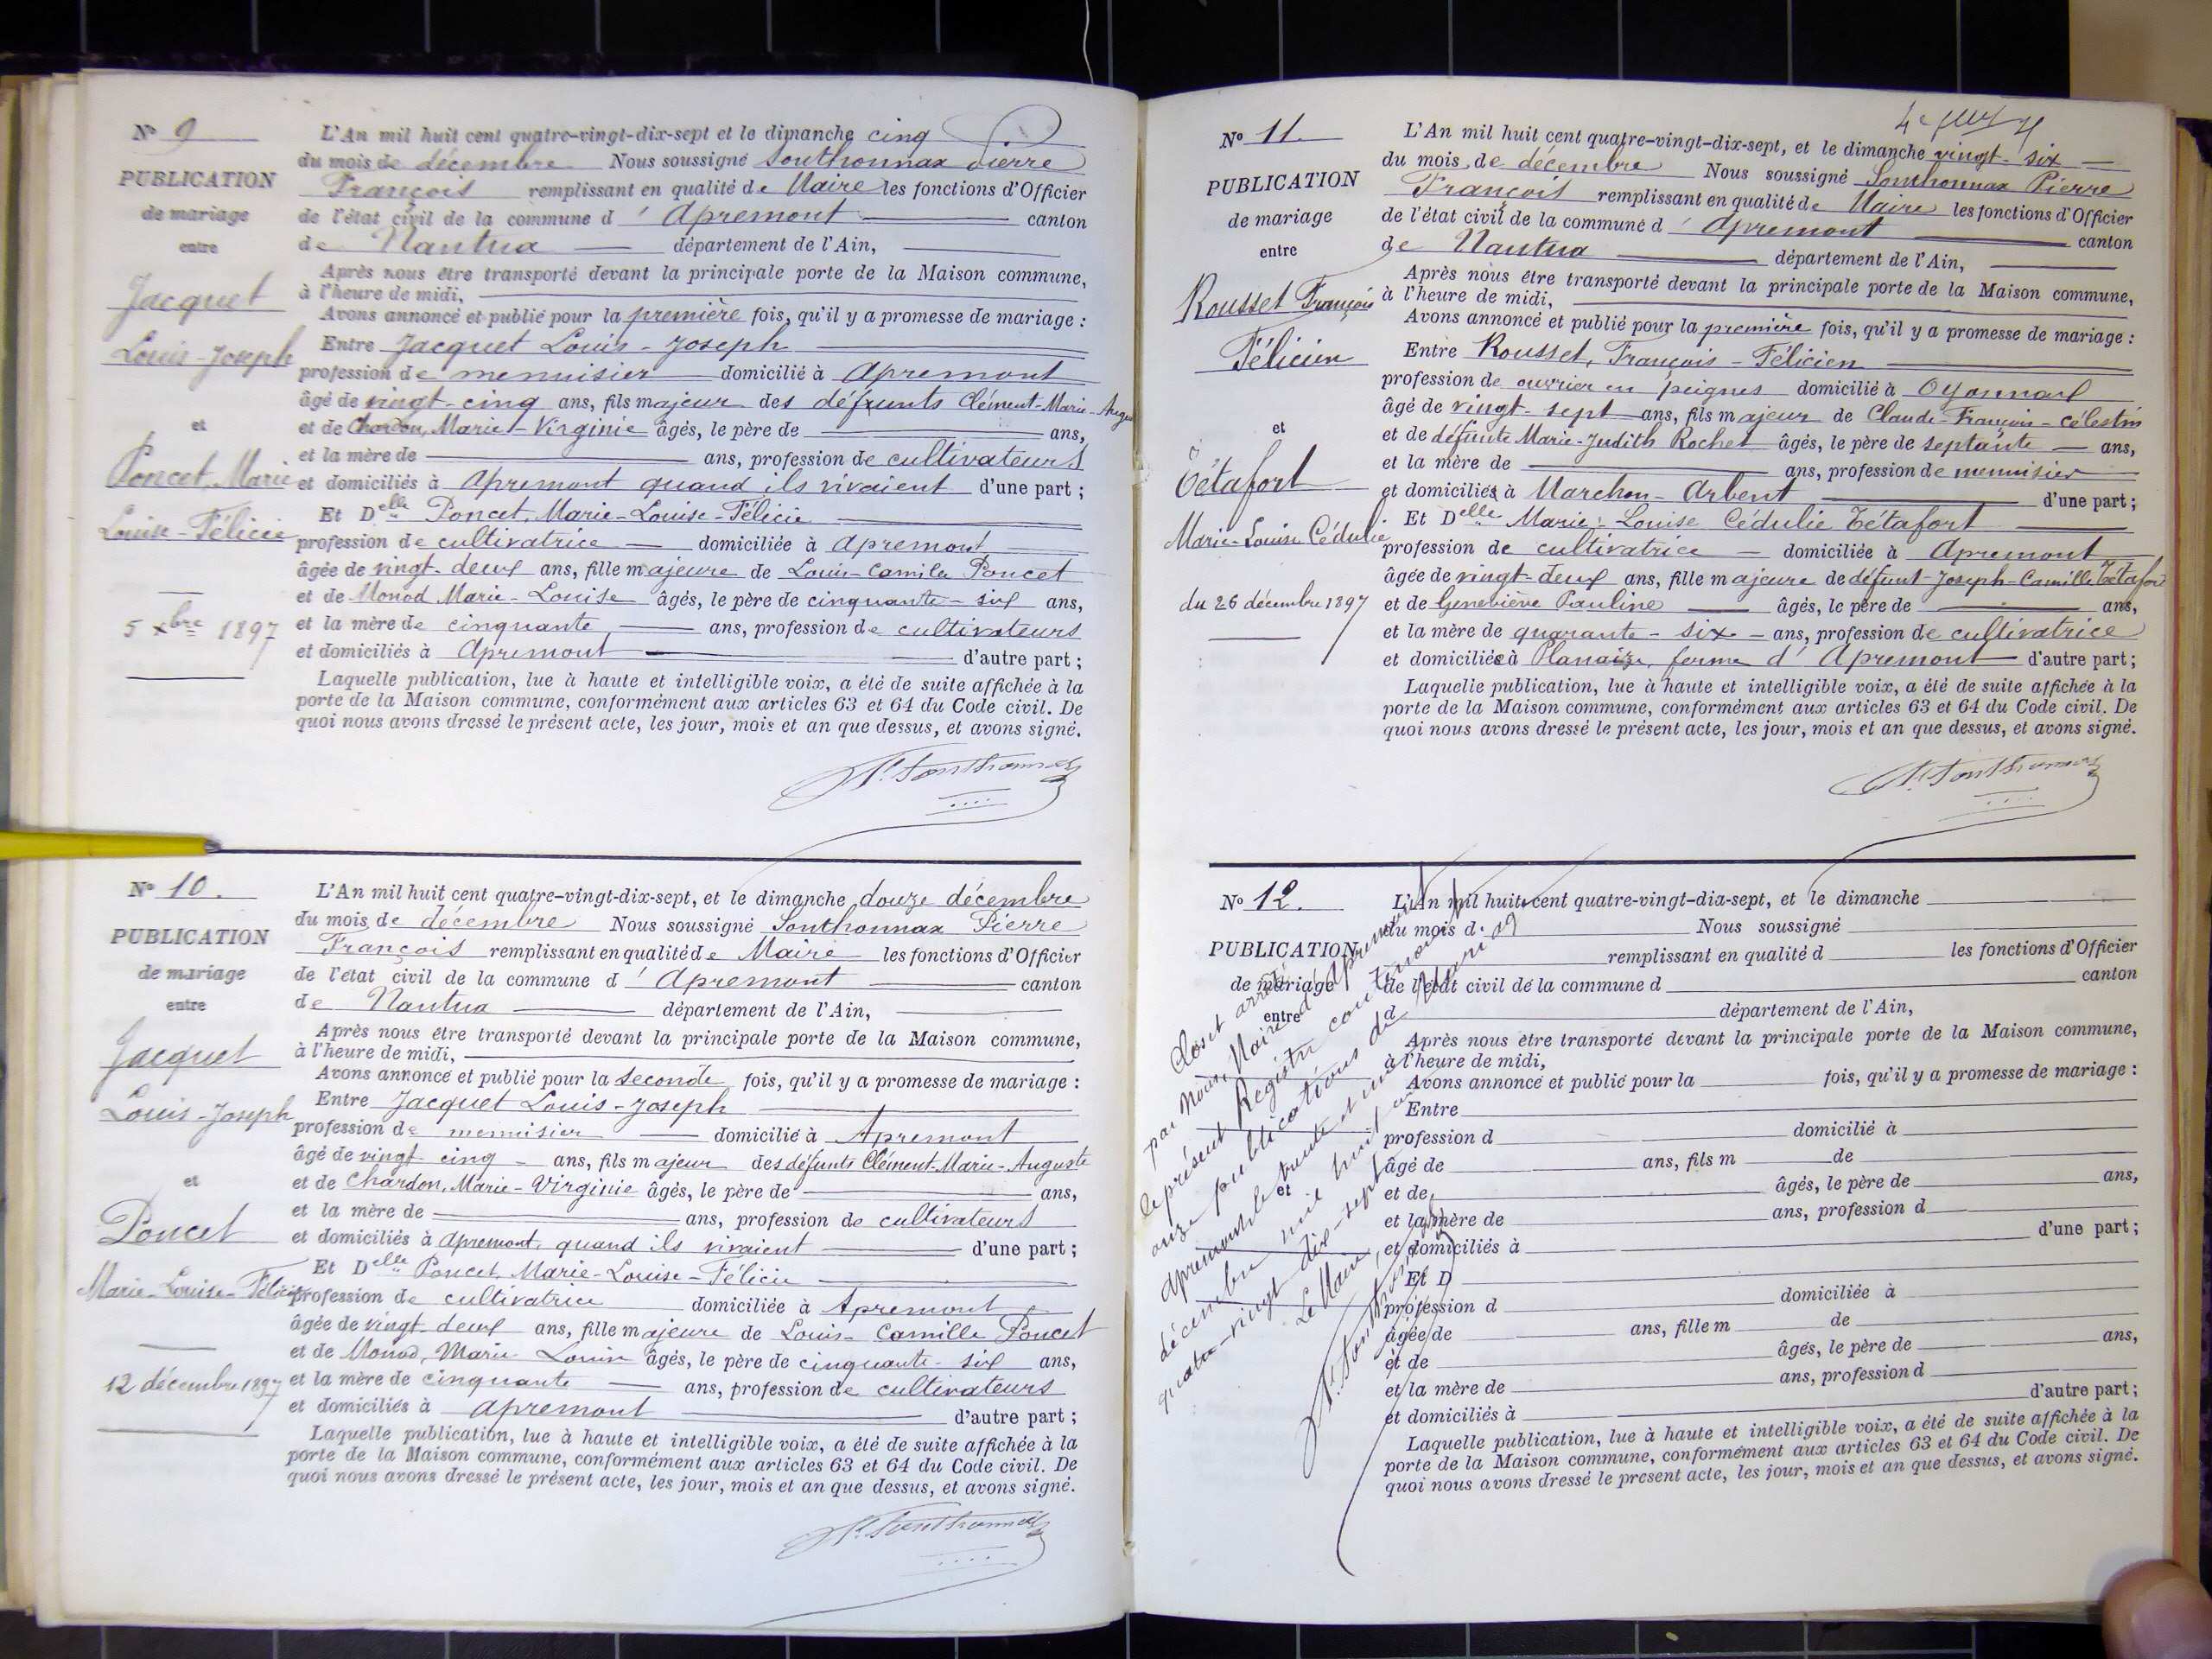 N° 9
PUBLICATION
de mariage
entre
Jacquet
Louis-Joseph
et
Poncet, Marie
Louise-Félicie
5 xbre 1897
L'An mil huit cent quatre-vingt-dix-sept et le dimanche cinq
du mois de décembre Nous soussigné Sonthonnax Pierre
François remplissant en qualité de Maire les fonctions d'Officier
de l'état civil de la commune d'Apremont canton
de Nantua département de l'Ain,
Après nous être transporté devant la principale porte de la Maison commune,
à l'heure de midi,
Avons annoncé et publié pour la première fois, qu'il y a promesse de mariage :
Entre Jacquet Louis-Joseph
profession de menuisier domicilié à Apremont
âgé de vingt-cinq ans, fils majeur des défunts Clément-Marie-Augus
et de Chardon, Marie-Virginie âgés, le père de ans,
et la mère de ans, profession de cultivateurs
et domiciliés à Apremont quand ils vivaient d'une part ;
Et Delle Poncet, Marie-Louise-Félicie
profession de cultivatrice domiciliée à Apremont
âgée de vingt-deux ans, fille majeure de Louis-Camille Poncet
et de Monod Marie-Louise âgés, le père de cinquante-six ans,
et la mère de cinquante ans, profession de cultivateurs
et domiciliés à Apremont d'autre part ;
Laquelle publication, lue à haute et intelligible voix, a été de suite affichée à la
porte de la Maison commune, conformément aux articles 63 et 64 du Code civil. De
quoi nous avons dressé le présent acte, les jour, mois et an que dessus, et avons signé.
Pre Sonthonnax
N° 10.
PUBLICATION
de mariage
entre
Jacquet
Louis-Joseph
et
Poncet
Marie-Louise-Félicie
12 décembre 1897
L'An mil huit cent quatre-vingt-dix-sept, et le dimanche douze décembre
du mois de décembre Nous soussigné Sonthonnax Pierre
François remplissant en qualité de Maire les fonctions d'Officier
de l'état civil de la commune d'Apremont canton
de Nantua département de l'Ain,
Après nous être transporté devant la principale porte de la Maison commune,
à l'heure de midi,
Avons annoncé et publié pour la seconde fois, qu'il y a promesse de mariage :
Entre Jacquet Louis-Joseph
profession de menuisier domicilié à Apremont
âgé de vingt-cinq ans, fils majeur des défunts Clément-Marie-Auguste
et de Chardon, Marie-Virginie âgés, le père de ans,
et la mère de ans, profession de cultivateurs
et domiciliés à Apremont, quand ils vivaient d'une part ;
Et Delle Poncet, Marie-Louise-Félicie
profession de cultivatrice domiciliée à Apremont
âgée de vingt-deux ans, fille majeure de Louis-Camille Poncet
et de Monod, Marie Louise âgés, le père de cinquante-six ans,
et la mère de cinquante ans, profession de cultivateurs
et domiciliés à Apremont d'autre part ;
Laquelle publication, lue à haute et intelligible voix, a été de suite affichée à la
porte de la Maison commune, conformément aux articles 63 et 64 du Code civil. De
quoi nous avons dressé le présent acte, les jour, mois et an que dessus, et avons signé.
Pre Sonthonnax
N° 11.
PUBLICATION
de mariage
entre
Rousset François
Félicien
et
Tétafort
Marie-Louise Cédulie
du 26 décembre 1897
L'An mil huit cent quatre-vingt-dix-sept, et le dimanche vingt-six
du mois de décembre Nous soussigné Sonthonnax Pierre
François remplissant en qualité de Maire les fonctions d'Officier
de l'état civil de la commune d'Apremont canton
de Nantua département de l'Ain,
Après nous être transporté devant la principale porte de la Maison commune,
à l'heure de midi,
Avons annoncé et publié pour la première fois, qu'il y a promesse de mariage :
Entre Rousset, François-Félicien
profession de ouvrier en peignes domicilié à Oyonnax
âgé de vingt-sept ans, fils majeur de Claude-François-Célestin
et de défunte Marie-Judith Rochet âgés, le père de septante ans,
et la mère de ans, profession de menuisier
et domiciliés à Marchon-Arbent d'une part ;
Et Delle Marie-Louise Cédulie Tétafort
profession de cultivatrice domiciliée à Apremont
âgée de vingt-deux ans, fille majeure de défunt Joseph-Camille Tétafort
et de Geneviève Pauline âgés, le père de ans,
et la mère de quarante-six ans, profession de cultivatrice
et domiciliés à Planaize, ferme d'Apremont d'autre part ;
Laquelle publication, lue à haute et intelligible voix, a été de suite affichée à la
porte de la Maison commune, conformément aux articles 63 et 64 du Code civil. De
quoi nous avons dressé le présent acte, les jour, mois et an que dessus, et avons signé.
Pre Sonthonnax
N° 12.
PUBLICATION
de mariage
entre
et
Clos et arrêté
par Nous, Maire d'Apremont
le présent Registre contenant
onze publications de Mariage
Apremont le trente et un
décembre mil huit cent
quatre-vingt dix-sept
Le Maire,
Pre Sonthonnax
L'An mil huit cent quatre-vingt-dix-sept, et le dimanche
du mois d Nous soussigné
remplissant en qualité d les fonctions d'Officier
de l'état civil de la commune d canton
d département de l'Ain,
Après nous être transporté devant la principale porte de la Maison commune,
à l'heure de midi,
Avons annoncé et publié pour la fois, qu'il y a promesse de mariage :
Entre
profession d domicilié à
âgé de ans, fils m de
et de âgés, le père de ans,
et la mère de ans, profession d
et domiciliés à d'une part ;
Et D
profession d domiciliée à
âgée de ans, fille m de
et de âgés, le père de ans,
et la mère de ans, profession d
et domiciliés à d'autre part ;
Laquelle publication, lue à haute et intelligible voix, a été de suite affichée à la
porte de la Maison commune, conformément aux articles 63 et 64 du Code civil. De
quoi nous avons dressé le présent acte, les jour, mois et an que dessus, et avons signé.